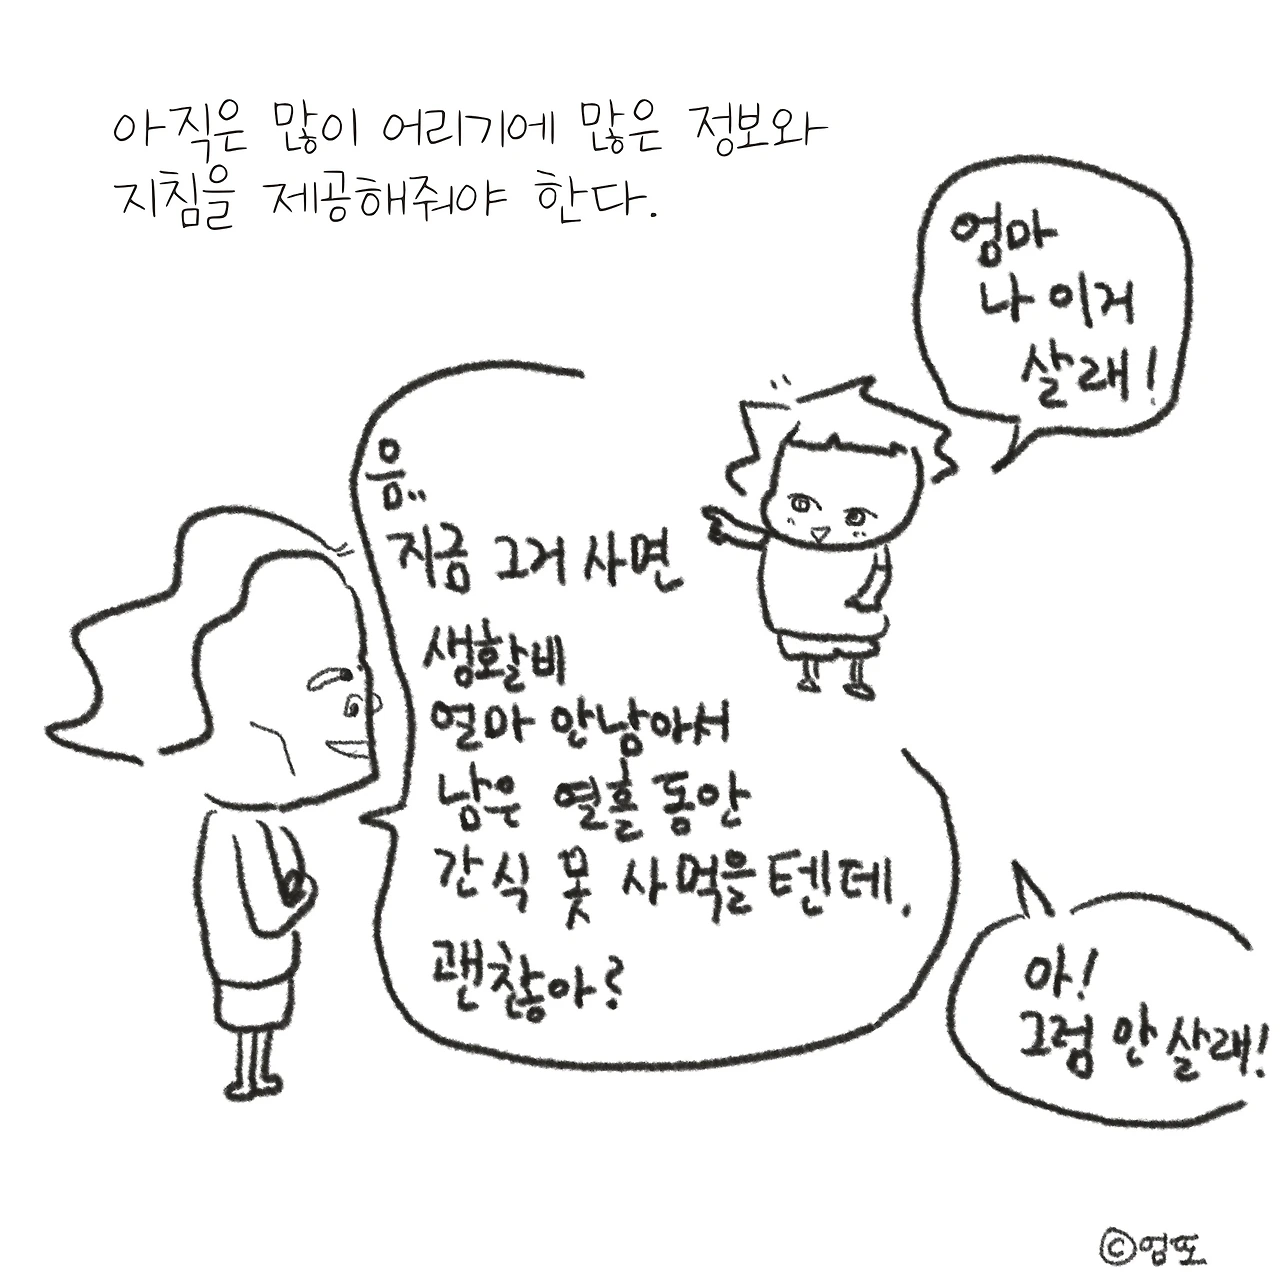 아직은 많이 어리기에 많은 정보와
지침을 제공해줘야 한다.
엄마
나 이거
살래!
음..
지금 그거 사면
생활비
얼마 안남아서
남은 열흘 동안
간식 못 사먹을텐데.
괜찮아?
아!
그럼 안 살래!
©엄또